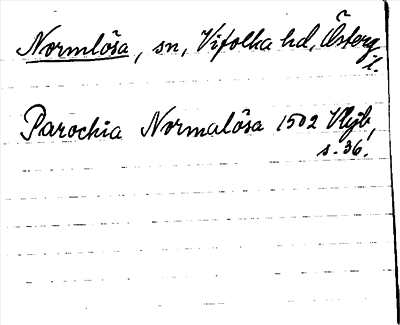 Normlösa, sn, Vifolka hd, Österg.
l.
Parochia Normalösa 1502
s. 36.